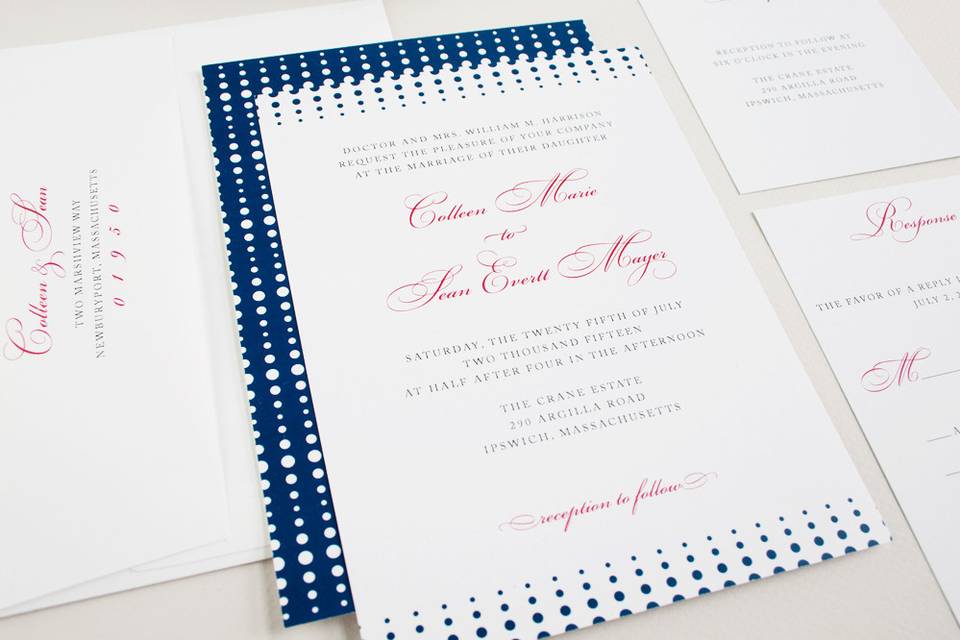 Colleen & Sean
TWO MARSHVIEW WAY
NEWBURYPORT, MASSACHUSETTS
01950
DOCTOR AND MRS. WILLIAM M. HARRISON
REQUEST THE PLEASURE OF YOUR COMPANY
AT THE MARRIAGE OF THEIR DAUGHTER
Colleen Marie
to
Sean Evertt Mayer
SATURDAY, THE TWENTY FIFTH OF JULY
TWO THOUSAND FIFTEEN
AT HALF AFTER FOUR IN THE AFTERNOON
THE CRANE ESTATE
290 ARGILLA ROAD
IPSWICH, MASSACHUSETTS
reception to follow
RECEPTION TO FOLLOW AT
SIX O'CLOCK IN THE EVENING
THE CRANE ESTATE
290 ARGILLA ROAD
IPSWICH, MASSACHUSETTS
Response
THE FAVOR OF A REPLY
JULY 2, 2
M